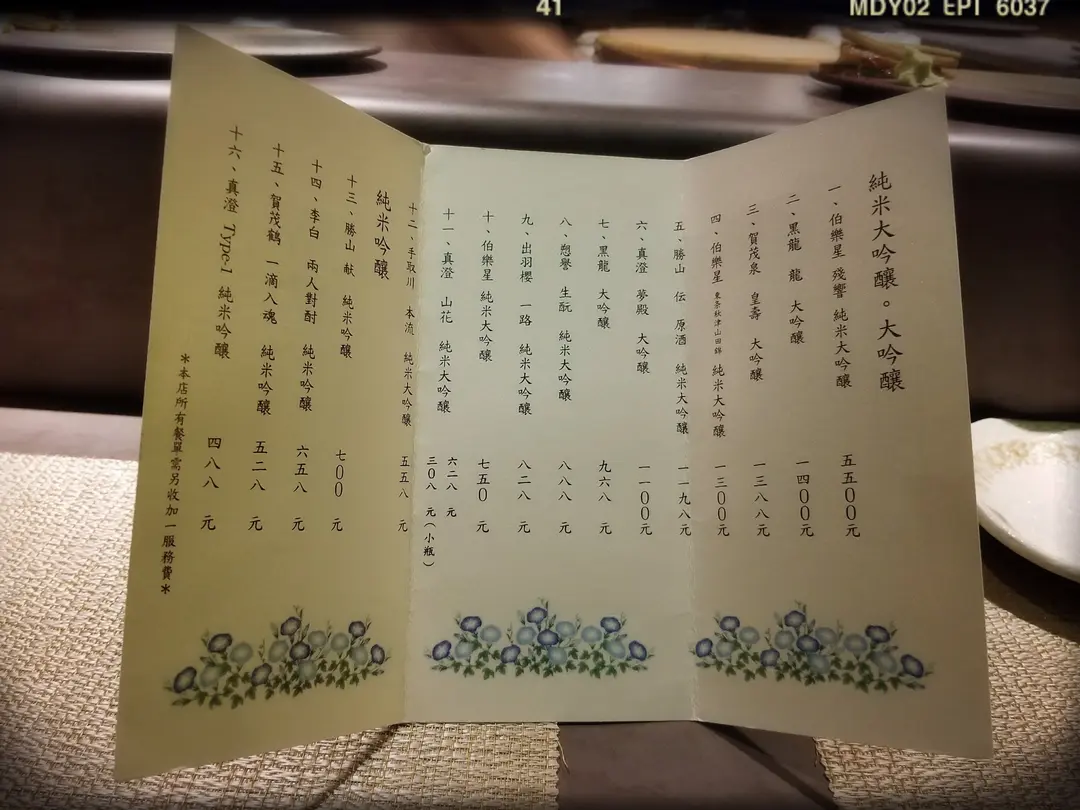 41
MDY02 EPI 6037
純米大吟釀。大吟釀
一、伯樂星 殘響 純米大吟釀 五五00元
二、黑龍 龍 大吟釀 一四00元
三、賀茂泉 皇壽 大吟釀 一三八八元
四、伯樂星 東条秋津山田錦 純米大吟釀 一三00元
五、勝山 伝 原酒 純米大吟釀 一一九八元
六、真澄 夢殿 大吟釀 一一00元
七、黑龍 大吟釀 九六八 元
八、憩譽 生酛 純米大吟釀 八八八 元
九、出羽櫻 一路 純米大吟釀 八二八 元
十、伯樂星 純米大吟釀 七五0 元
十一、真澄 山花 純米大吟釀 六二八 元
三0八 元(小瓶)
十二、手取川 本流 純米大吟釀 五五八 元
純米吟釀
十三、勝山 献 純米吟釀 七00 元
十四、李白 兩人對酌 純米吟釀 六五八 元
十五、賀茂鶴 一滴入魂 純米吟釀 五二八 元
十六、真澄 Type-1 純米吟釀 四八八 元
*本店所有餐單需另收加一服務費*